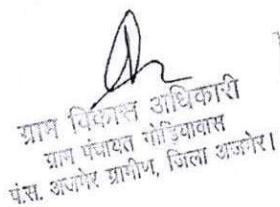 ग्राम विकास अधिकारी
ग्राम पंचायत गोडियावास
पं.स. अजमेर ग्रामीण, जिला अजमेर।